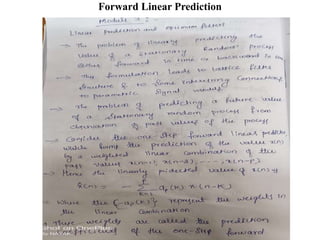 Forward Linear Prediction
Module 2:
Linear Prediction and optimum filters
→ The problem of linearly predicting the
value of a stationary Random process
either forward in time or backward in time
→ This formulation leads to lattice filter
structure & to some interesting connections
to parametric signal models
→ The problem of predicting a future value
of a stationary random process from
observation of past values of the process
→ Consider the one-step forward linear predictor
which forms the prediction of the value x(n)
by a weighted linear combination of the
past values x(n-1), x(n-2), ---, x(n-p)
→ Hence the linearly predicted value of x(n) is
x̂(n) = - Σ ap(k) x(n-k)
k=1
→ where the {-ap(k)} represent the weights in
the linear combination
→ These weights are called the prediction
coefficients of the one-step forward
Shot on OnePlus
By NAYAK